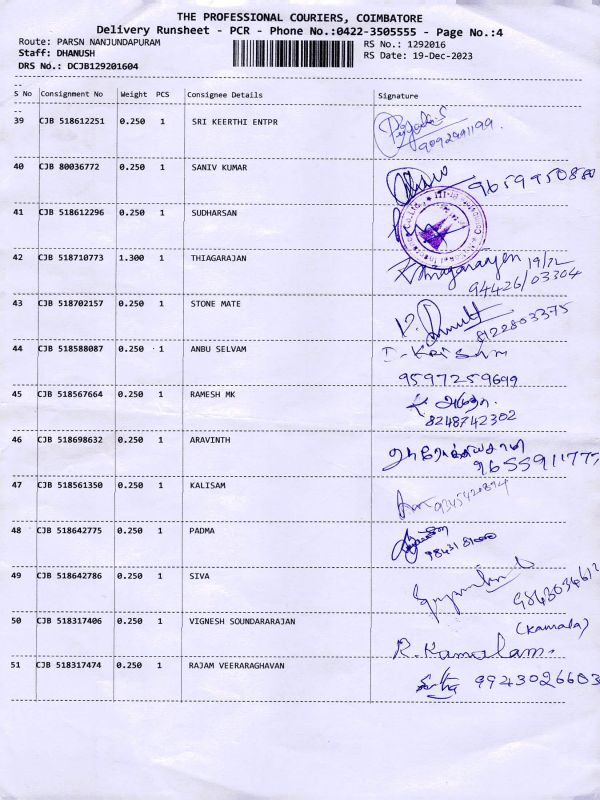 THE PROFESSIONAL COURIERS, COIMBATORE
Delivery Runsheet - PCR - Phone No.:0422-3505555 - Page No.:4
Route: PARSN NANJUNDAPURAM
RS No.: 1292016
Staff: DHANUSH
RS Date: 19-Dec-2023
DRS No.: DCJB129201604
S No Consignment No Weight PCS Consignee Details Signature
39 CJB 518612251 0.250 1 SRI KEERTHI ENTPR
9092991199
40 CJB 80036772 0.250 1 SANIV KUMAR
9659950880
41 CJB 518612296 0.250 1 SUDHARSAN
42 CJB 518710773 1.300 1 THIAGARAJAN
19/12
94426/03304
43 CJB 518702157 0.250 1 STONE MATE
8122803375
44 CJB 518588087 0.250 1 ANBU SELVAM
9597259699
45 CJB 518567664 0.250 1 RAMESH MK
8248742302
46 CJB 518698632 0.250 1 ARAVINTH
47 CJB 518561350 0.250 1 KALISAM
48 CJB 518642775 0.250 1 PADMA
49 CJB 518642786 0.250 1 SIVA
9843034612
50 CJB 518317406 0.250 1 VIGNESH SOUNDARARAJAN
(Kamala)
R. Kamalam.
51 CJB 518317474 0.250 1 RAJAM VEERARAGHAVAN
9943026603